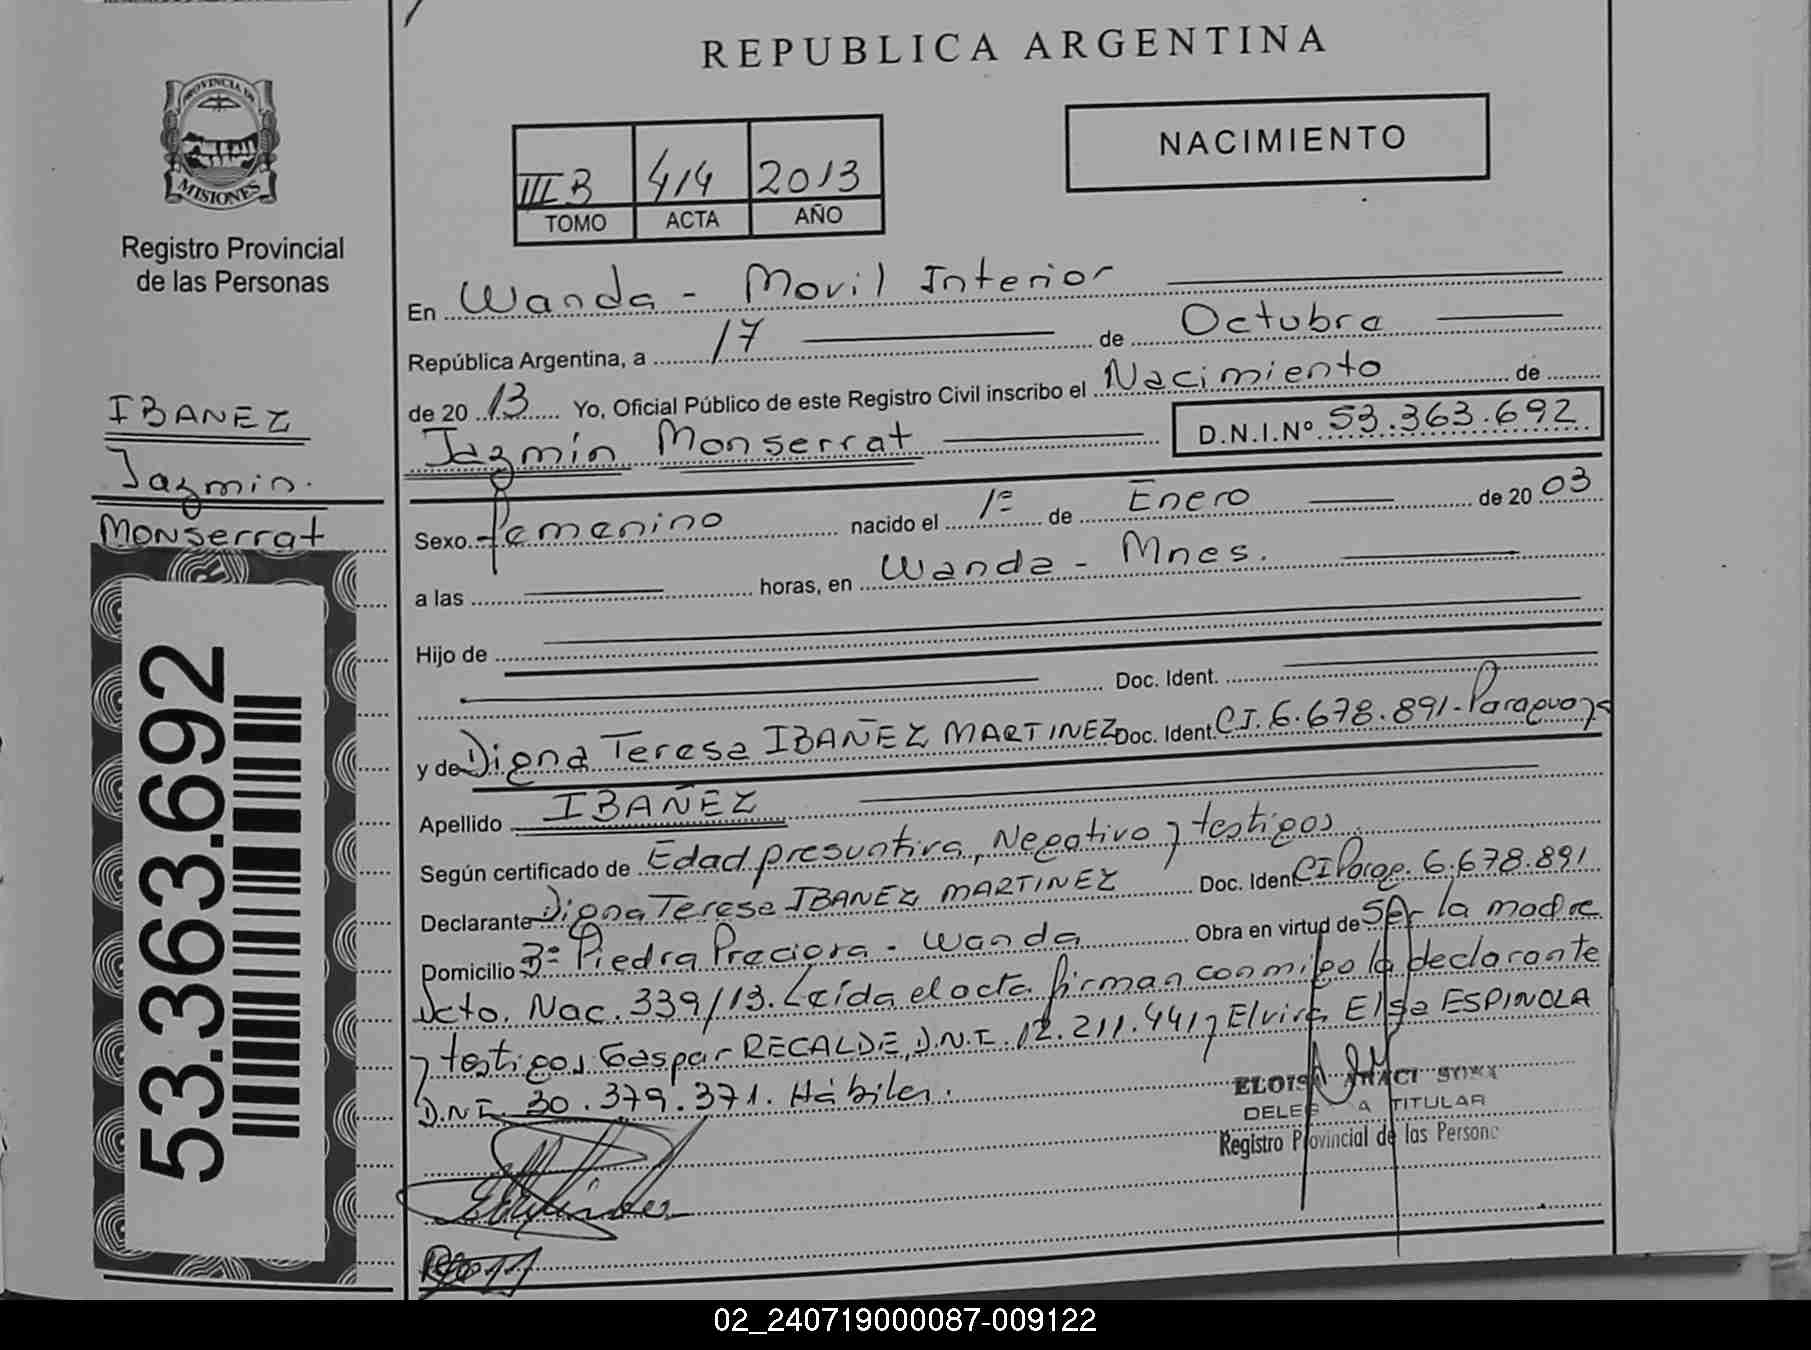 REPUBLICA ARGENTINA
PROVINCIA DE
MISIONES
Registro Provincial
de las Personas
NACIMIENTO
III B 414 2013
TOMO ACTA AÑO
En Wanda - Movil Interior
República Argentina, a 17 de Octubre
de 20 13 Yo, Oficial Público de este Registro Civil inscribo el Nacimiento de
Jazmin Monserrat D.N.I.Nº 53.363.692
IBAÑEZ
Jazmin.
Monserrat
53.363.692
Sexo femenino nacido el 1º de Enero de 20 03
a las horas, en Wanda - Mnes.
Hijo de
Doc. Ident.
y de Digna Teresa IBAÑEZ MARTINEZ Doc. Ident. CI. 6.678.891 - Paraguaya
Apellido IBAÑEZ
Según certificado de Edad presuntiva, Negativo y testigos
Declarante Digna Teresa IBAÑEZ MARTINEZ Doc. Ident. CI Parag. 6.678.891
Domicilio Bº Piedra Preciosa - Wanda Obra en virtud de Ser la madre
Dcto. Nac. 339/13. Leída el acta firman conmigo la declarante
y testigos Gaspar RECALDE, D.N.I. 12.211.441 y Elvira Elsa ESPINOLA
D.N.I. 30.379.371. Hábiles.
ELOISA
TITULAR
Registro Provincial de las Persona
02_240719000087-009122